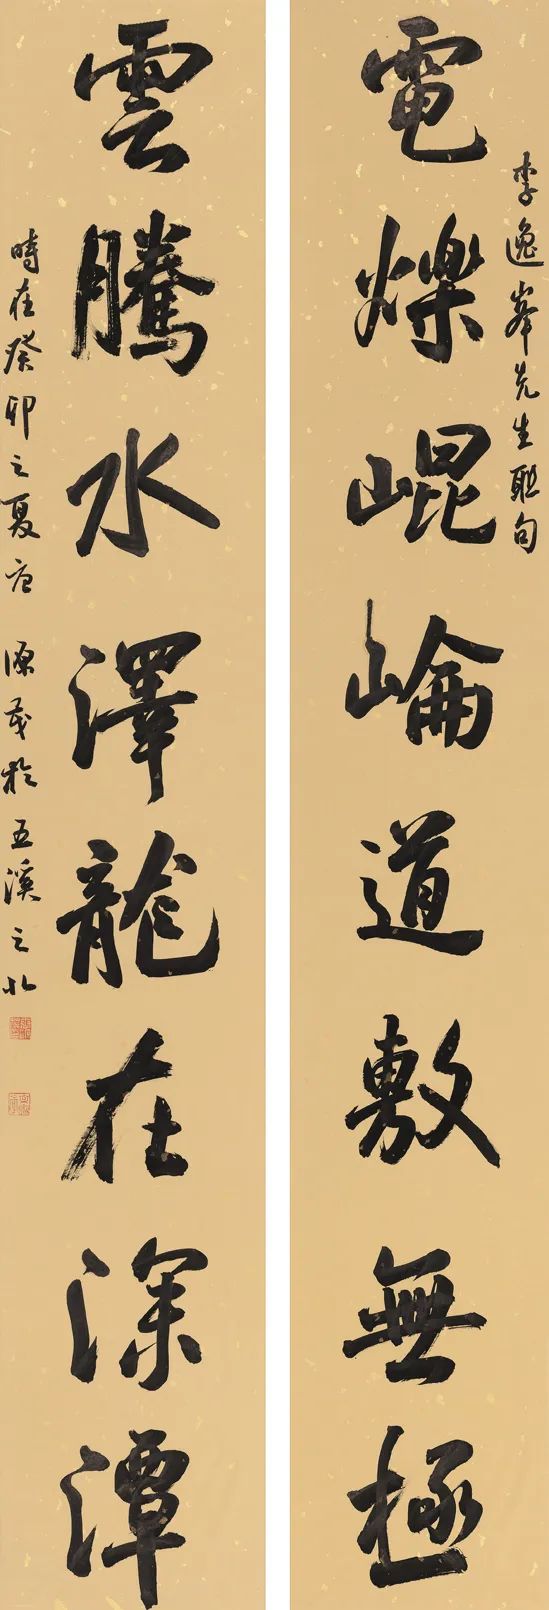 李逸峯先生聯句
電爍崐崘道敷無極
雲騰水澤龍在深潭
時在癸卯之夏 源茂於五溪之北